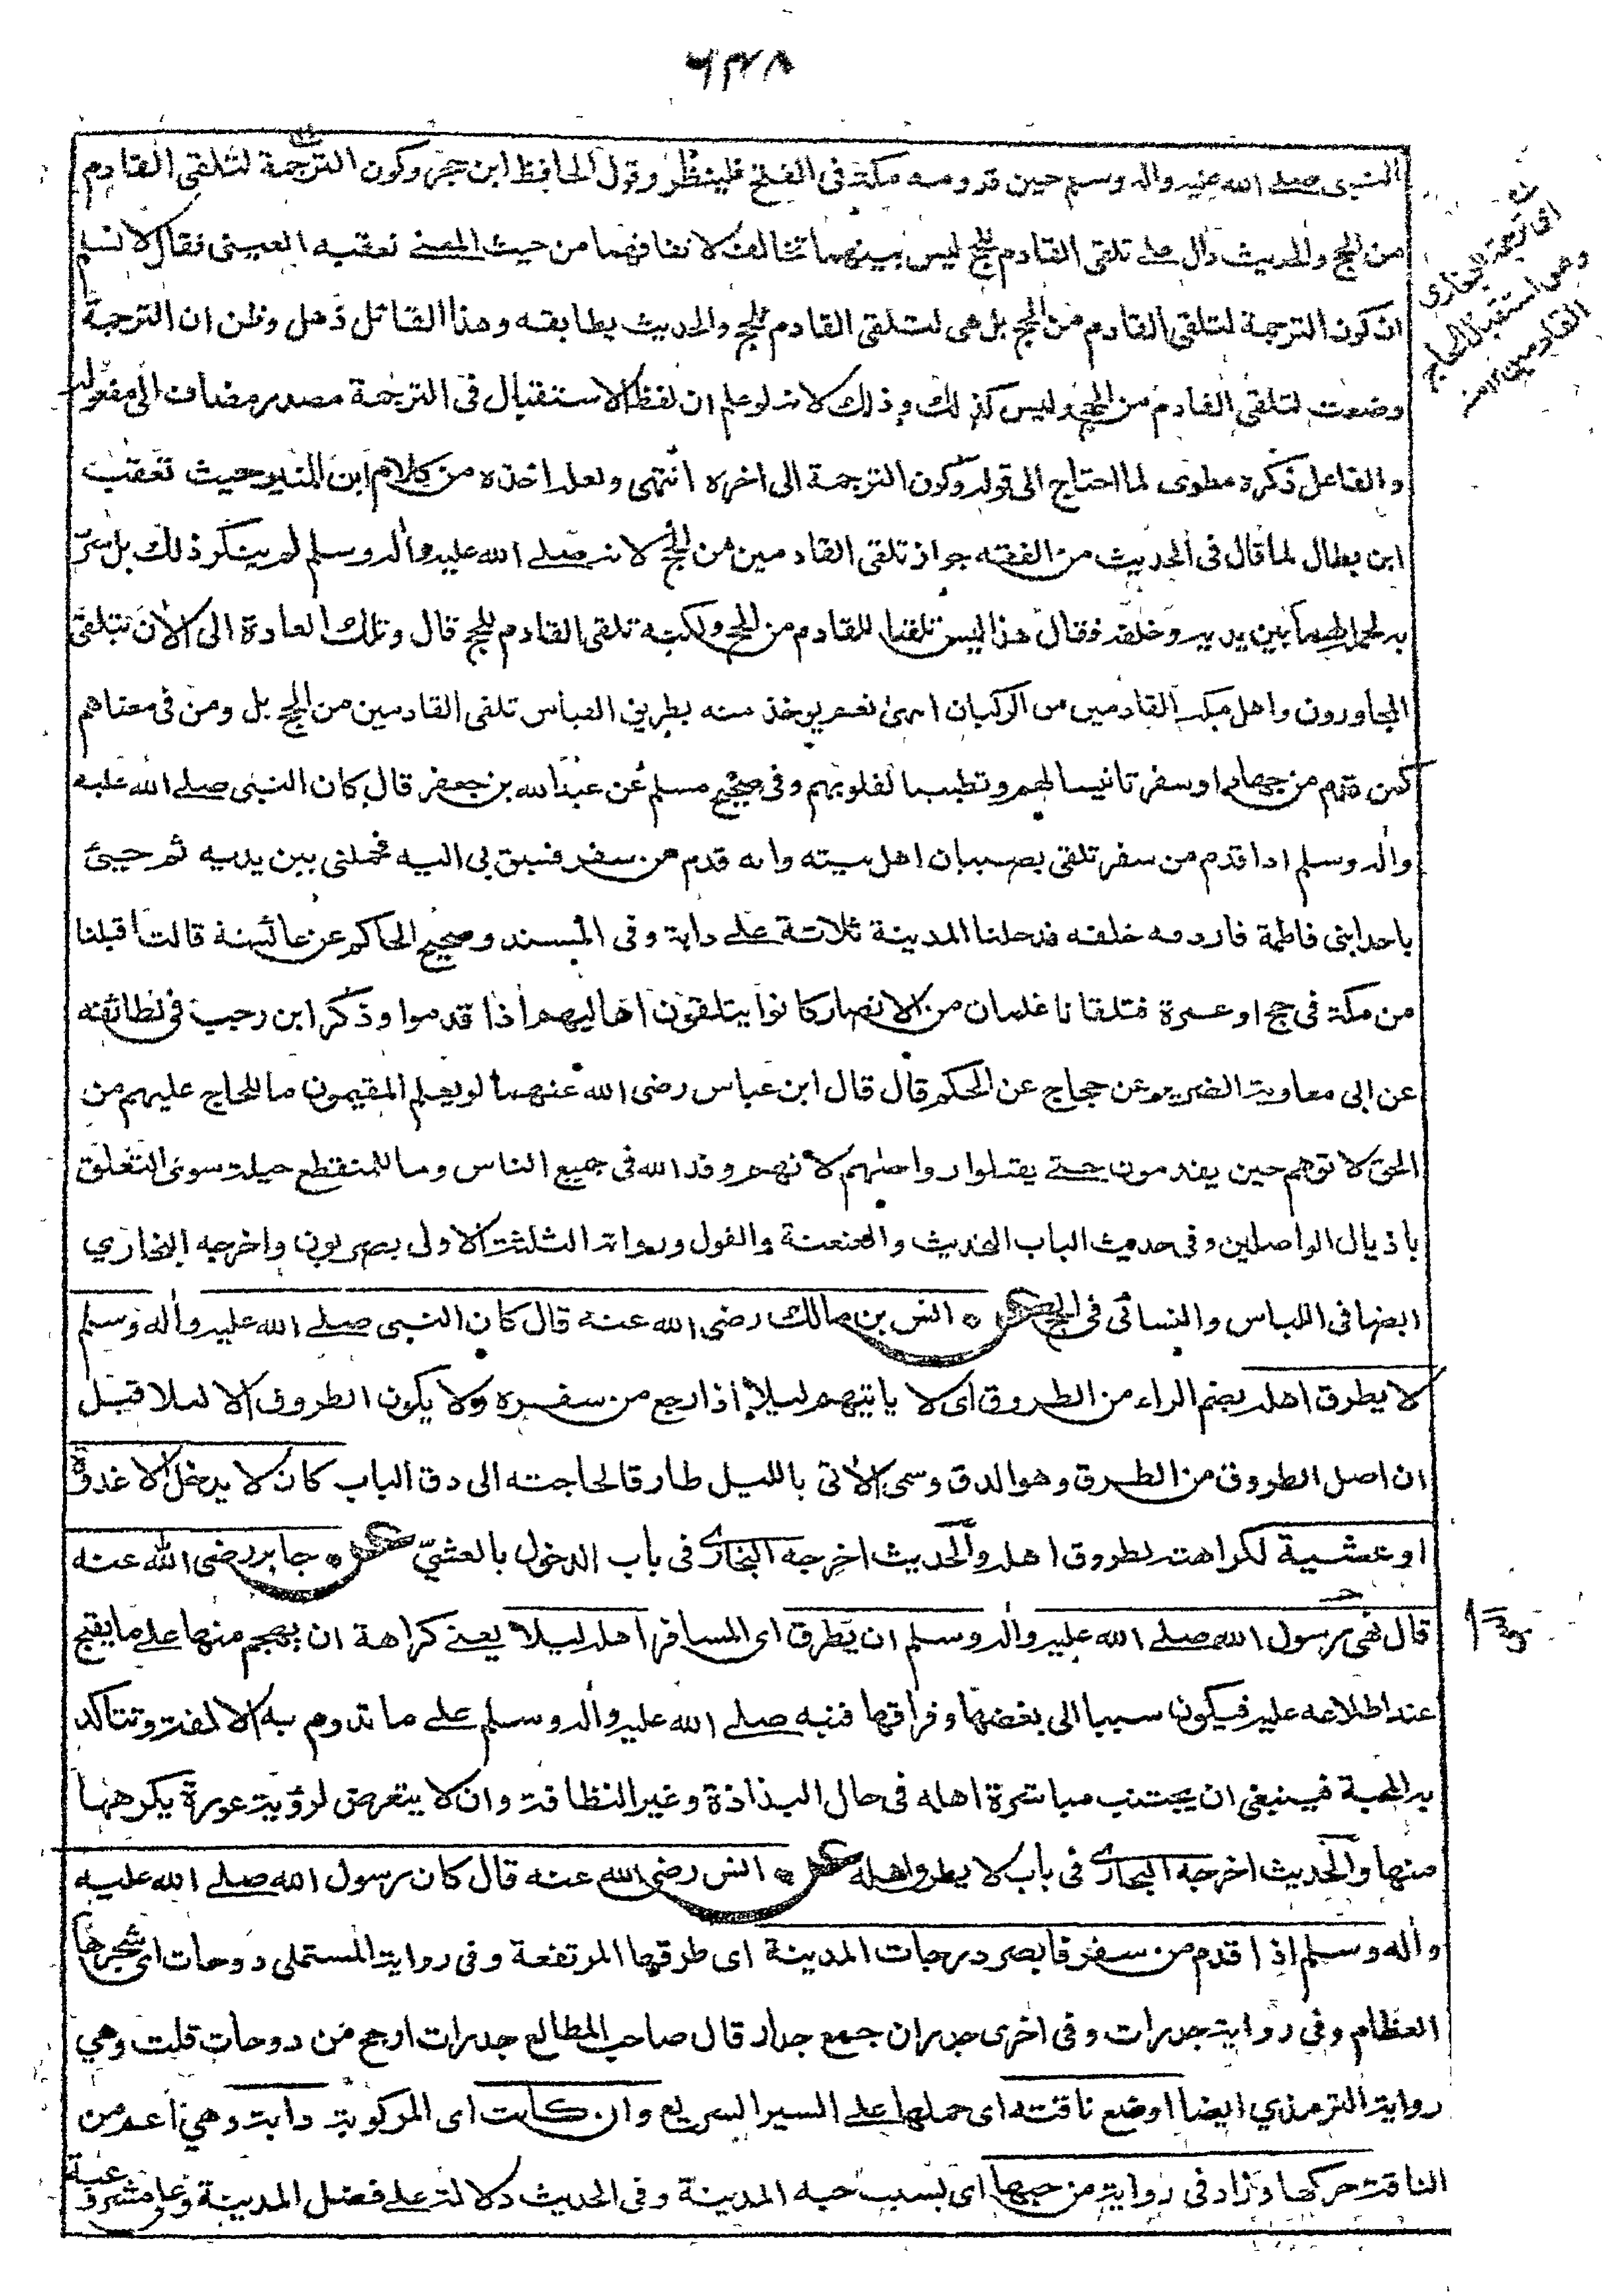 ٦٣٨
النبى صلے الله عليه واله وسلم حين قدومه مكة فى الفتح فلينظر وقول الحافظ ابن حجر وكون الترجمة لتلقى القادم
من الحج والحديث دال على تلقى القادم للحج ليس بينهما تخالف لاتفاقهما من حيث المعنے تعقبه العينى فقال لا نسلم
ان كون الترجمة لتلقى القادم من الحج بل هى لتلقى القادم للحج والحديث يطابقه وهذا القائل ذهل وظن ان الترجمة
وضعت لتلقى القادم من الحج وليس كذلك وذلك لانه لو علم ان لفظ الاستقبال فى الترجمة مصدر مضاف الى مفعوله
والفاعل ذكره مطوى لما احتاج الى قوله وكون الترجمة الى اخره انتهى ولعله اخذه من كلام ابن المنير حيث تعقب
ابن بطال لما قال فى الحديث من الفقه جواز تلقى القادمين من الحج لانه صلے الله عليه واله وسلم لم ينكر ذلك بل سرّ
به لحمله لهما بين يديه وخلفه فقال هذا ليس تلقيا للقادم من الحج ولكنه تلقى القادم للحج قال وتلك العادة الى الان تتلقى
المجاورون واهل مكة القادمين من الركبان انتهى نعم يوخذ منه بطريق القياس تلقى القادمين من الحج بل ومن فى معناهم
كمن قدم من جهاد او سفر تانيسا لهم وتطييبا لقلوبهم وفى صحيح مسلم عن عبدالله بن جعفر قال كان النبى صلے الله عليه
واله وسلم اذا قدم من سفر تلقى بصبيان اهل بيته وانه قدم من سفر فسبق بى اليه فحملنى بين يديه ثم جيئ
باحد ابنى فاطمة فاردفه خلفه فدخلنا المدينة ثلاثة علے دابة وفى المسند وصحيح الحاكم عن عائشة قالت اقبلنا
من مكة فى حج او عمرة فتلقانا غلمان من الانصار كانوا يتلقون اهاليهم اذا قدموا وذكر ابن رجب فى لطائفه
عن ابى معاوية الضرير عن حجاج عن الحكم قال قال ابن عباس رضى الله عنهما لو يعلم المقيمون ما للحاج عليهم من
الحق لاتوهم حين يقدمون حتے يقبلوا رواحلهم لانهم وفد الله فى جميع الناس وما للمنقطع حيلة سوى التعلق
باذيال الواصلين وفى حديث الباب التحديث والعنعنة والقول ورواته الثلثة الاول بصريون واخرجه البخاري
ايضا فى اللباس والنسائى فى الحج عن انس بن مالك رضى الله عنه قال كان النبى صلے الله عليه واله وسلم
لا يطرق اهله بضم الراء من الطروق اى لا ياتيهم ليلا اذا رجع من سفره ولا يكون الطروق الا ليلا قيل
ان اصل الطروق من الطرق وهو الدق وسمى الاتى بالليل طارقا لحاجته الى دق الباب كان لا يدخل الا غدوة
او عشية لكراهته لطروق اهله والحديث اخرجه البخارى فى باب الدخول بالعشىّ عن جابر رضى الله عنه
قال نهى رسول الله صلے الله عليه واله وسلم ان يطرق اى المسافر اهله ليلا يعنے كراهة ان يهجم منها علے ما يقبح
عند اطلاعه عليه فيكون سببا الى بغضها وفراقها فنبه صلے الله عليه واله وسلم علے ما تدوم به الالفة وتتاكد
به المحبة فينبغى ان يجتنب مباشرة اهله فى حال البذاذة وغير النظافة وان لا يتعرض لرؤية عورة يكرهها
منها والحديث اخرجه البخارى فى باب لا يطرق اهله عن انس رضى الله عنه قال كان رسول الله صلے الله عليه
واله وسلم اذا قدم من سفر فابصر درجات المدينة اى طرقها المرتفعة وفى رواية المستملى دوحات اى شجرها
العظام وفى رواية جدرات وفى اخرى جدران جمع جدار قال صاحب المطالع جدرات ارجح من دوحات قلت وهي
رواية الترمذي ايضا اوضع ناقته اى حملها علے السير السريع وان كانت اى المركوبة دابة وهي اعم من
الناقة حركها وزاد فى رواية من حبها اى بسبب حبه المدينة وفى الحديث دلالة على فضل المدينة وعلى مشروعية
اى ترجمة البخارى
وهى استقبال الحاج
القادمين